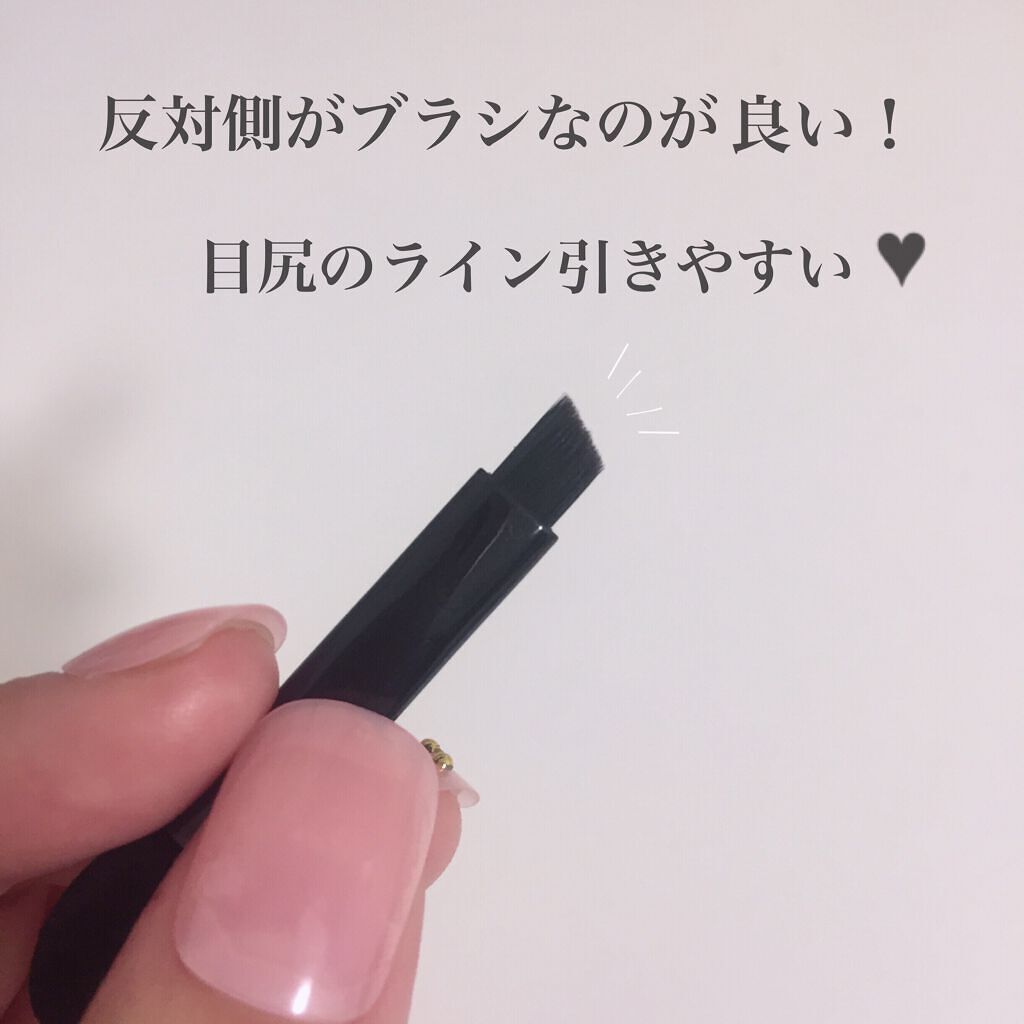 反対側がブラシなのが良い！
目尻のライン引きやすい♥